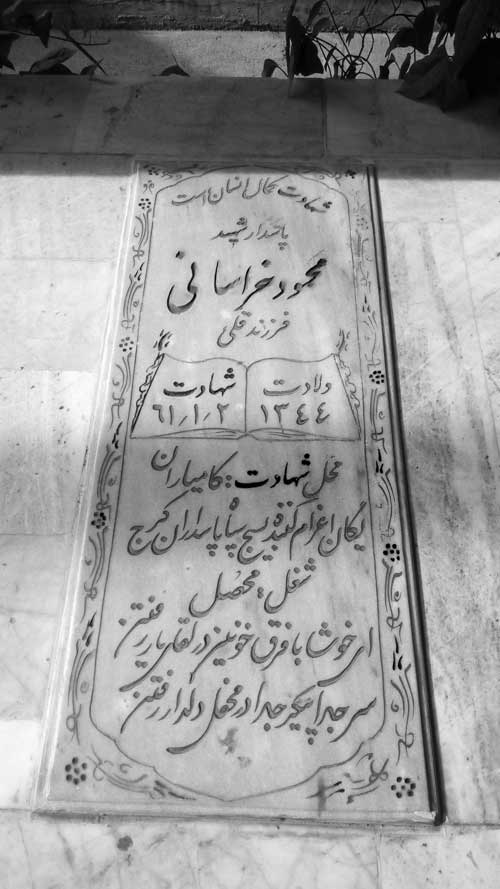 شهادت کمال انسان است
پاسدار شهید
محمود خراسانی
فرزند قلی
ولادت
۱۳۴۴
شهادت
۶۱/۱/۲
محل شهادت: کامیاران
یگان اعزام کننده بسیج سپاه پاسداران کرج
شغل: محصل
ای خوشا با فرق خونین در لقای یار رفتن
سر جدا پیکر جدا در محفل دلدار رفتن